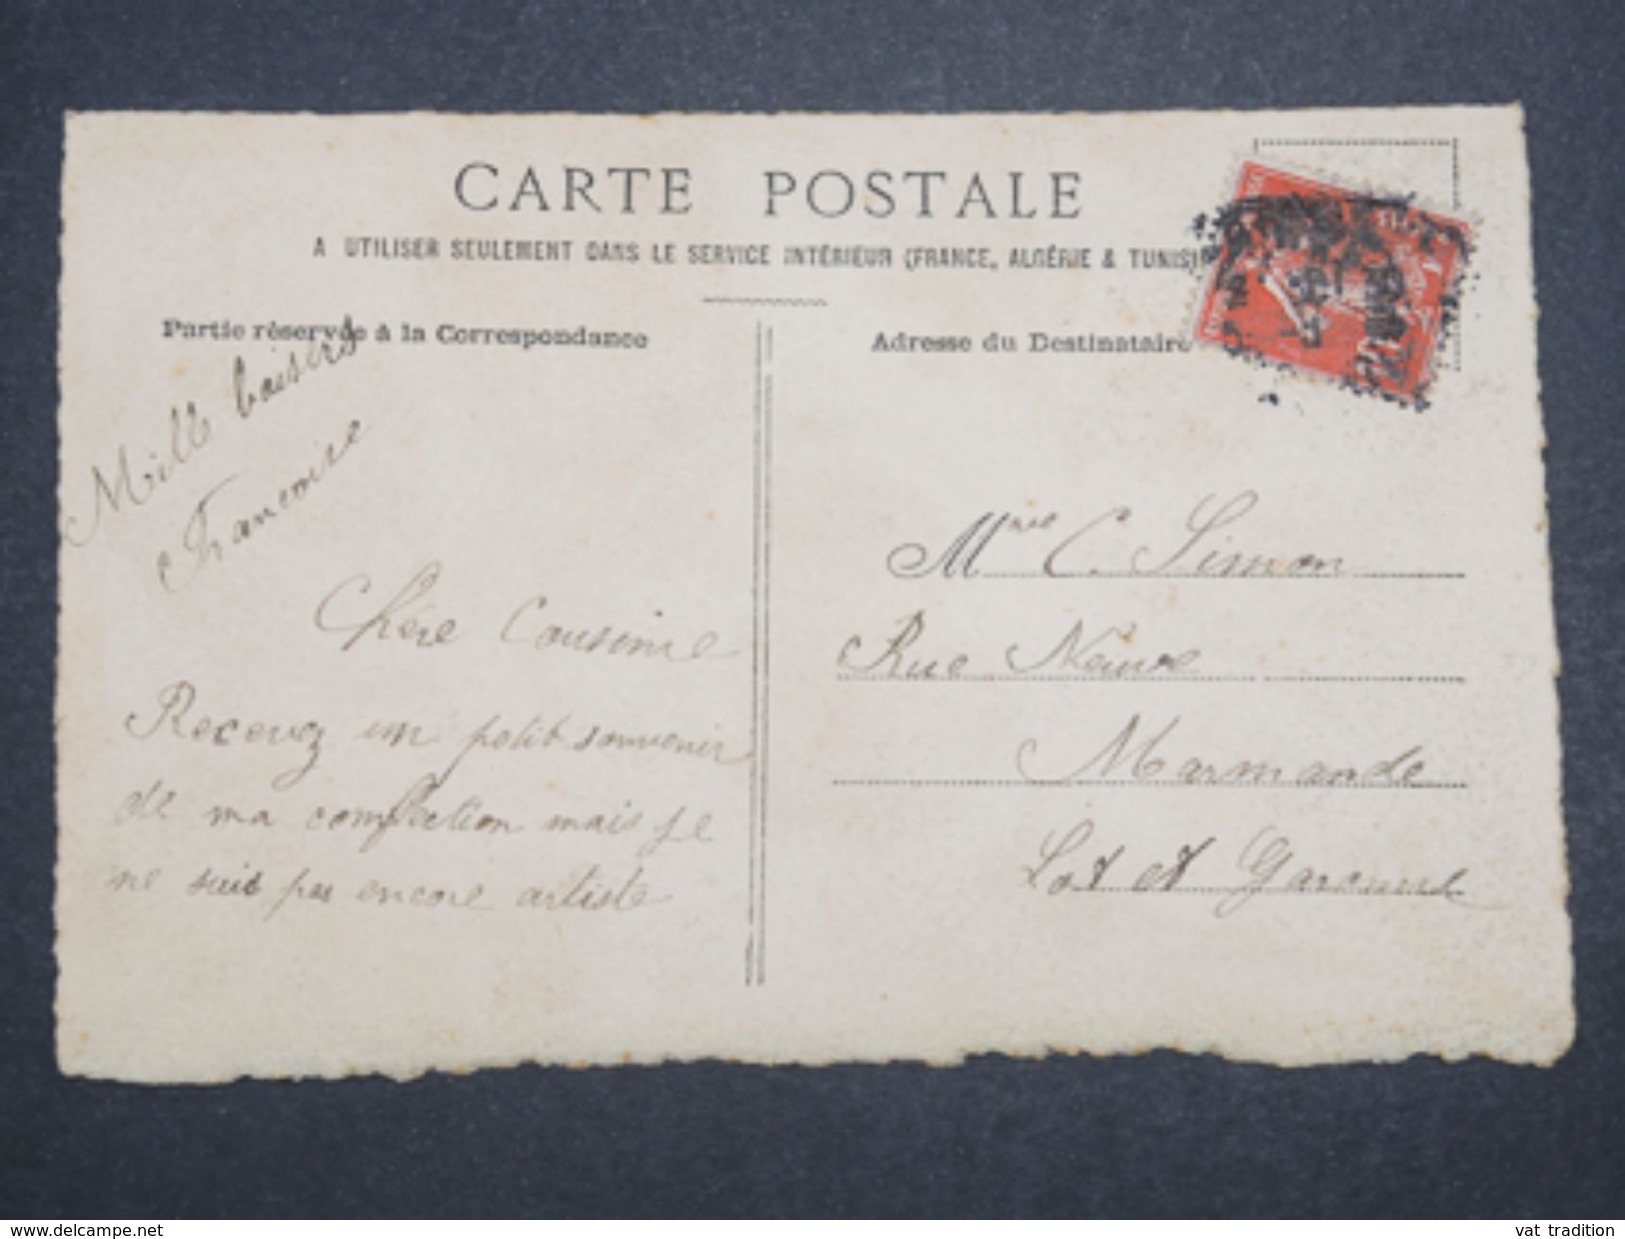 CARTE POSTALE
A UTILISER SEULEMENT DANS LE SERVICE INTÉRIEUR (FRANCE, ALGÉRIE & TUNISI
Partie réservée à la Correspondance
Mille baisers
Françoise
Chère Cousine
Recevez un petit souvenir
de ma confection mais je
ne suis pas encore artiste
Adresse du Destinataire
Mme C. Simon
Rue Neuve
Marmande
Lot et Garonne
www.delcampe.net
vat tradition